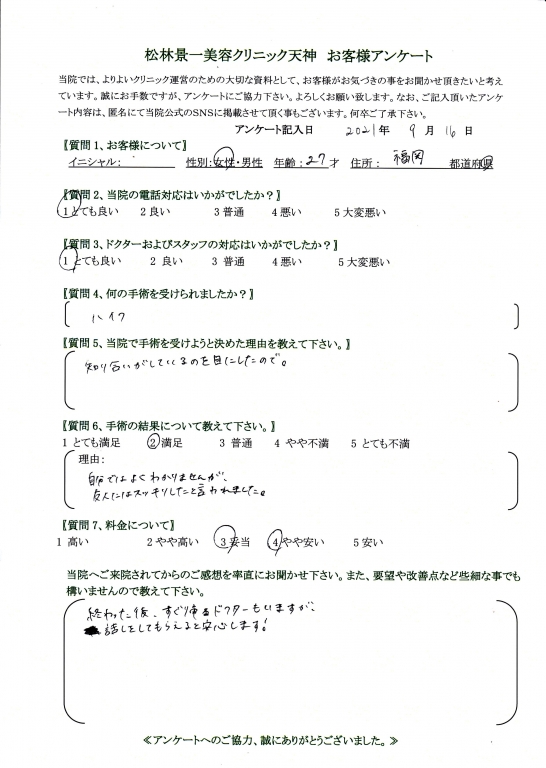 松林景一美容クリニック天神　お客様アンケート
当院では、よりよいクリニック運営のための大切な資料として、お客様がお気づきの事をお聞かせ頂きたいと考え
ています。誠にお手数ですが、アンケートにご協力下さい。よろしくお願い致します。なお、ご記入頂いたアンケ
ート内容は、匿名にて当院公式のSNSに掲載させて頂く事もございます。何卒ご了承下さい。
アンケート記入日　2021年　9月　16日
〖質問 1、お客様について〗
イニシャル：　性別：女性・男性　年齢：27才　住所：福岡　都道府県
〖質問 2、当院の電話対応はいかがでしたか？〗
1 とても良い　2 良い　3 普通　4 悪い　5 大変悪い
〖質問 3、ドクターおよびスタッフの対応はいかがでしたか？〗
1 とても良い　2 良い　3 普通　4 悪い　5 大変悪い
〖質問 4、何の手術を受けられましたか？〗
ハイフ
〖質問 5、当院で手術を受けようと決めた理由を教えて下さい。〗
知り合いがしているのを目にしたので。
〖質問 6、手術の結果について教えて下さい。〗
1 とても満足　2 満足　3 普通　4 やや不満　5 とても不満
理由：
自分ではよくわかりませんが、
友人にはスッキリしたと言われました。
〖質問 7、料金について〗
1 高い　2 やや高い　3 妥当　4 やや安い　5 安い
当院へご来院されてからのご感想を率直にお聞かせ下さい。また、要望や改善点など些細な事でも
構いませんので教えて下さい。
終わった後、すぐ帰るドクターもいますが、
話しをしてもらえると安心します!
≪アンケートへのご協力、誠にありがとうございました。≫